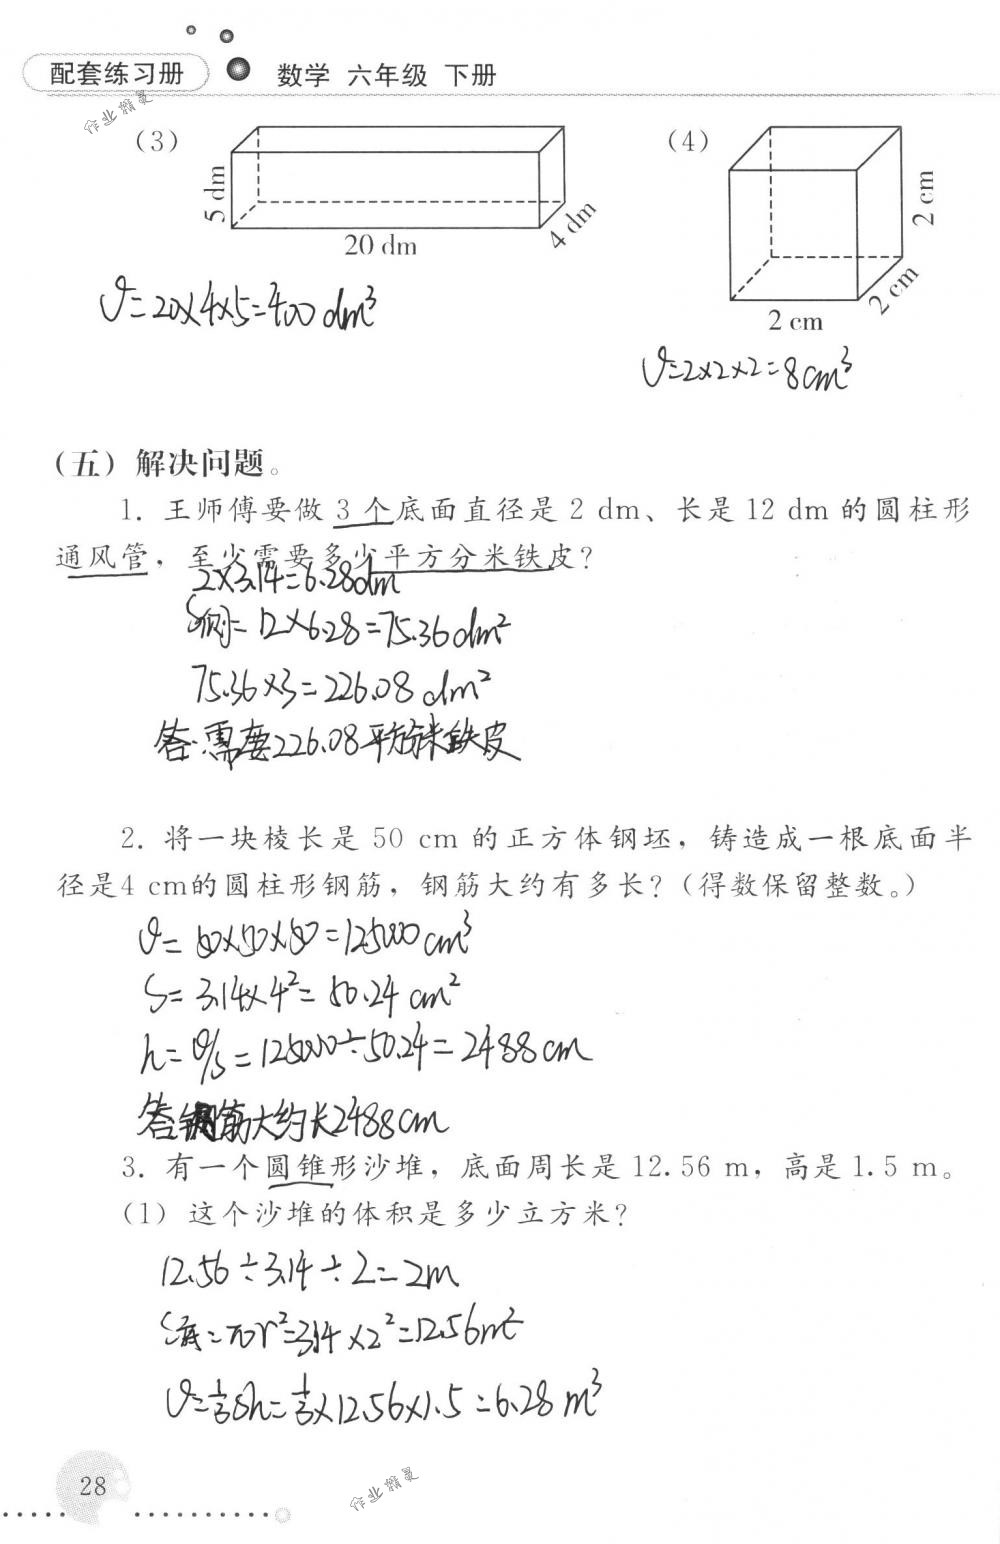 配套练习册 数学 六年级 下册
作业精灵
(3)
5 dm
20 dm
4 dm
(4)
2 cm
2 cm
2 cm
V=20×4×5=400dm³
V=2×2×2=8cm³
(五) 解决问题。
1. 王师傅要做 3 个底面直径是 2 dm、长是 12 dm 的圆柱形
通风管，至少需要多少平方分米铁皮？
2×3.14=6.28dm
S侧=12×6.28=75.36dm²
75.36×3=226.08dm²
答:需要226.08平方分米铁皮
2. 将一块棱长是 50 cm 的正方体钢坯，铸造成一根底面半
径是4 cm的圆柱形钢筋，钢筋大约有多长？(得数保留整数。)
V=50×50×50=125000cm³
S=3.14×4²=50.24cm²
h=V/s=125000÷50.24=2488cm
答钢筋大约长2488cm
3. 有一个圆锥形沙堆，底面周长是 12.56 m，高是 1.5 m。
(1) 这个沙堆的体积是多少立方米？
12.56÷3.14÷2=2m
S底=πr²=3.14×2²=12.56m²
V=1/3Sh=1/3×12.56×1.5=6.28m³
28
作业精灵